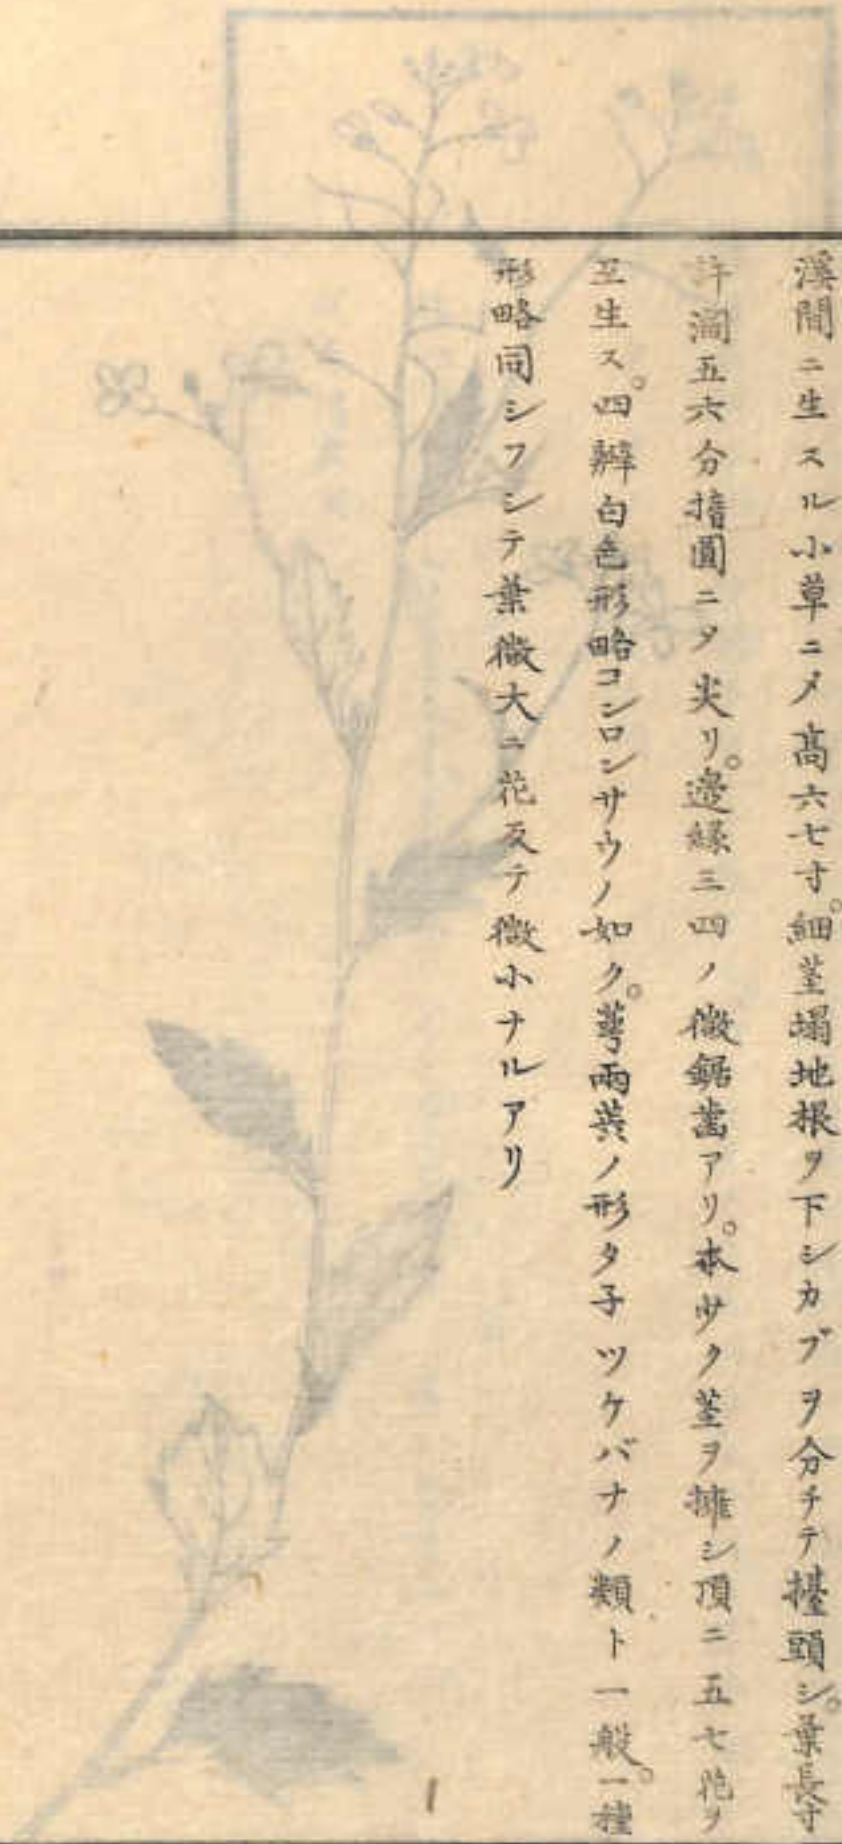 溪間ニ生スル小草ニメ高六七寸。細莖塌地根ヲ下シカブヲ分チテ擡頭シ。葉長寸
許濶五六分橢圓ニメ尖リ。邊緣三四ノ微鋸齒アリ。本狹ク莖ヲ擁シ頂ニ五七花ヲ
互生ス。四瓣白色形略コンロンサウノ如ク。萼兩莢ノ形タ子ツケバナノ類ト一般。一種
形略同シフシテ葉微大ニ花反テ微小ナルアリ